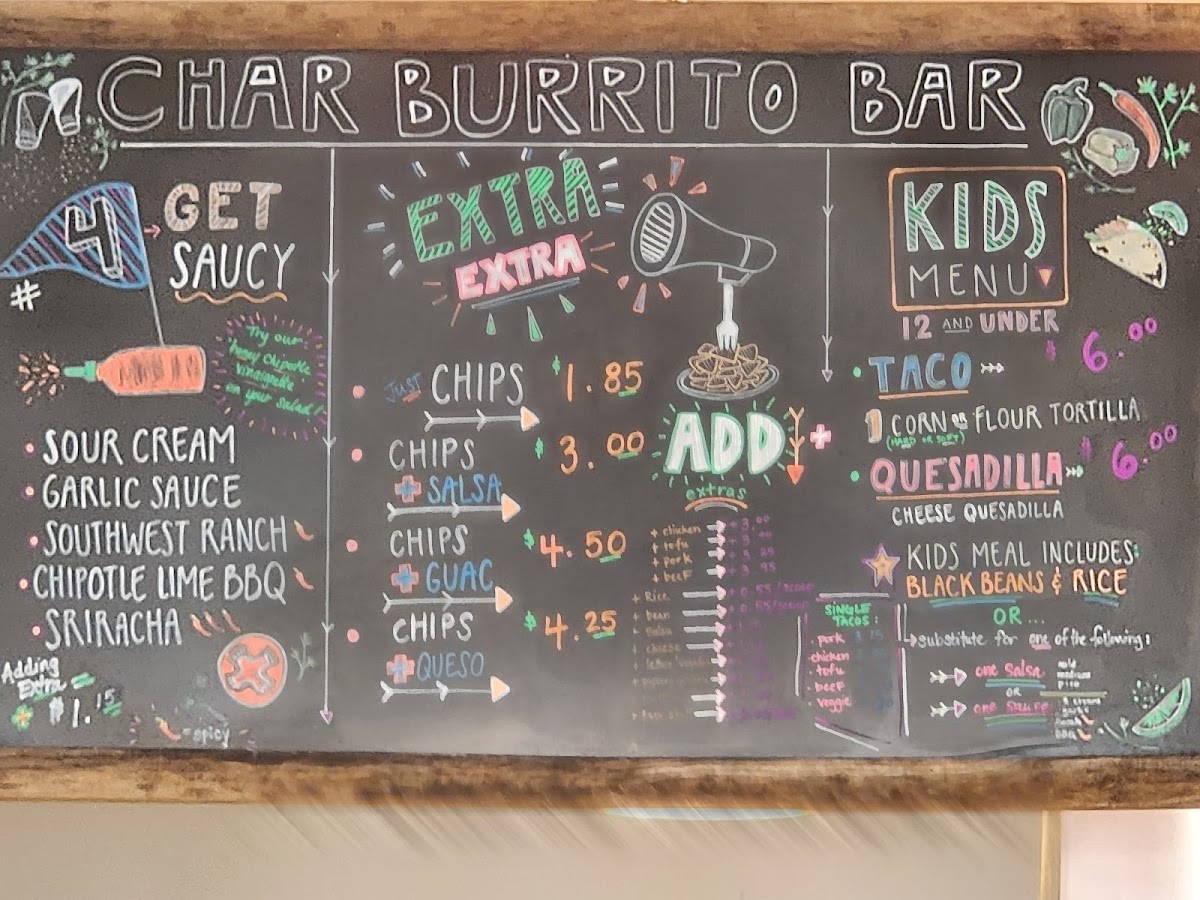 CHAR BURRITO BAR
#4 GET
SAUCY
Try our
honey Chipotle
vinaigrette
on your salad!
SOUR CREAM
GARLIC SAUCE
SOUTHWEST RANCH
CHIPOTLE LIME BBQ
SRIRACHA
Adding
Extra
+ $1.15
= spicy
EXTRA
EXTRA
JUST CHIPS $1.85
CHIPS $3.00
+ SALSA
CHIPS $4.50
+ GUAC
CHIPS $4.25
+ QUESO
ADD +
extras
+ chicken
+ tofu
+ pork
+ beef
+ Rice
+ bean
SINGLE
TACOS:
pork
chicken
tofu
beef
veggie
KIDS
MENU
12 AND UNDER
TACO $6.00
1 CORN OR FLOUR TORTILLA
(HARD OR SOFT)
QUESADILLA $6.00
CHEESE QUESADILLA
KIDS MEAL INCLUDES:
BLACK BEANS & RICE
OR...
substitute for one of the following:
one salsa
OR
one sauce